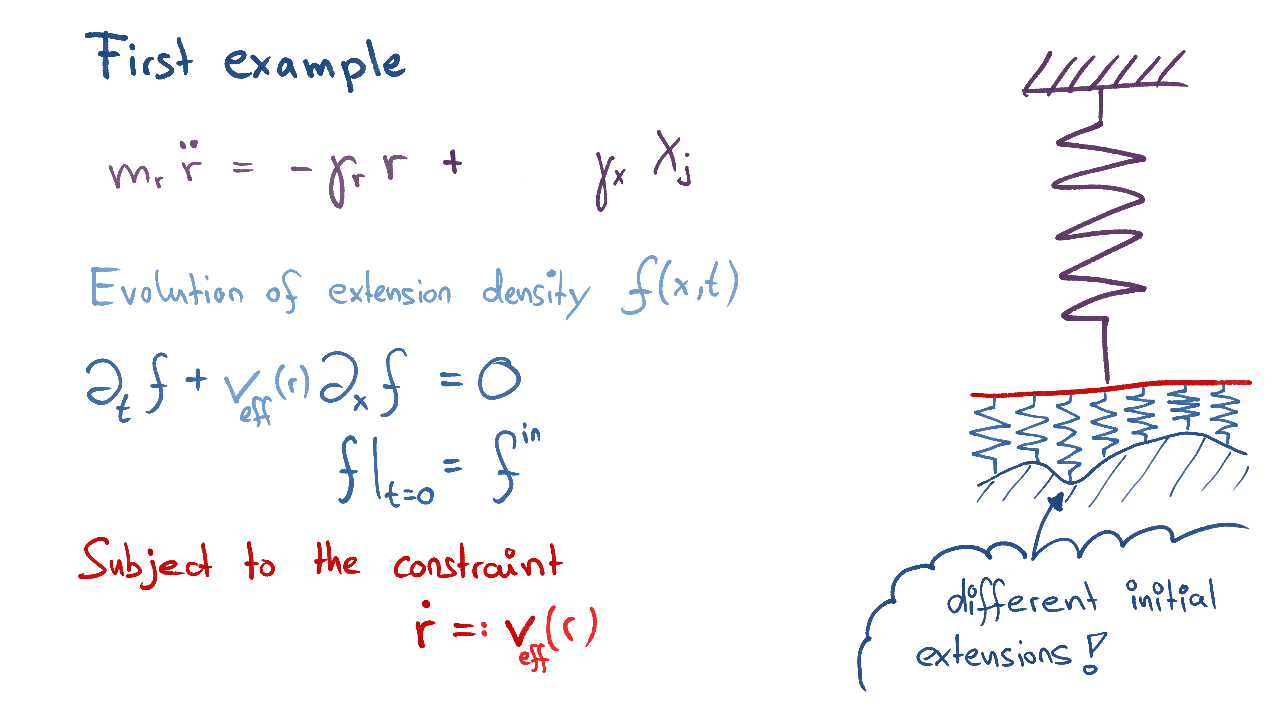 First example
mᵣ r̈ = - γᵣ r + γₓ Xⱼ
Evolution of extension density f(x,t)
∂ₜ f + v_eff(r) ∂ₓ f = 0
f|ₜ₌₀ = f^in
Subject to the constraint
ṙ =: v_eff(r)
different initial
extensions!